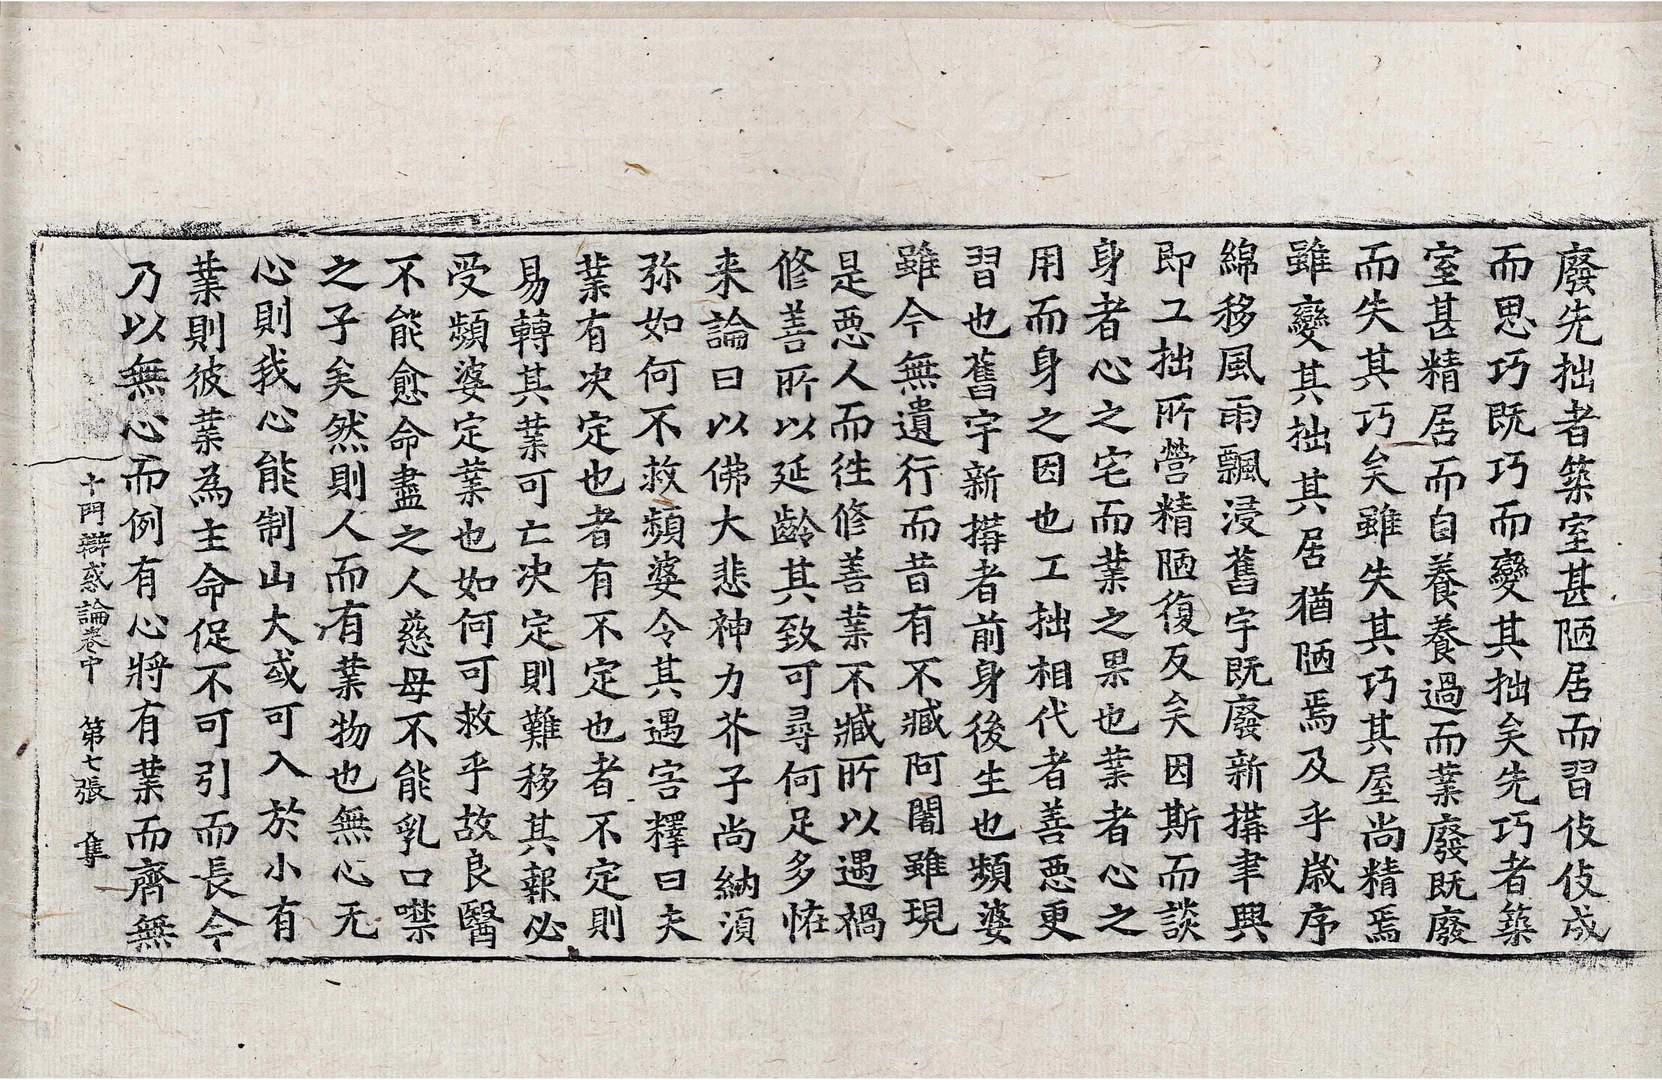 廢先拙者築室甚陋居而習伎伎成
而思巧既巧而變其拙矣先巧者築
室甚精居而自養養過而業廢既廢
而失其巧矣雖失其巧其屋尚精焉
雖變其拙其居猶陋焉及乎歲序
綿移風雨飄浸舊宇既廢新搆聿興
即工拙所營精陋復反矣因斯而談
身者心之宅而業之果也業者心之
用而身之因也工拙相代者善惡更
習也舊宇新搆者前身後生也頻婆
雖今無遺行而昔有不臧阿闍雖現
是惡人而徃修善業不臧所以遇禍
修善所以延齡其致可尋何足多恠
来論曰以佛大悲神力芥子尚納湏
弥如何不救頻婆令其遇害釋曰夫
業有决定也者有不定也者不定則
易轉其業可亡决定則難移其報必
受頻婆定業也如何可救乎故良醫
不能愈命盡之人慈母不能乳口噤
之子矣然則人而有業物也無心无
心則我心能制山大或可入於小有
業則彼業為主命促不可引而長今
乃以無心而例有心將有業而齊無
十門辯惑論卷中　第七張　隼